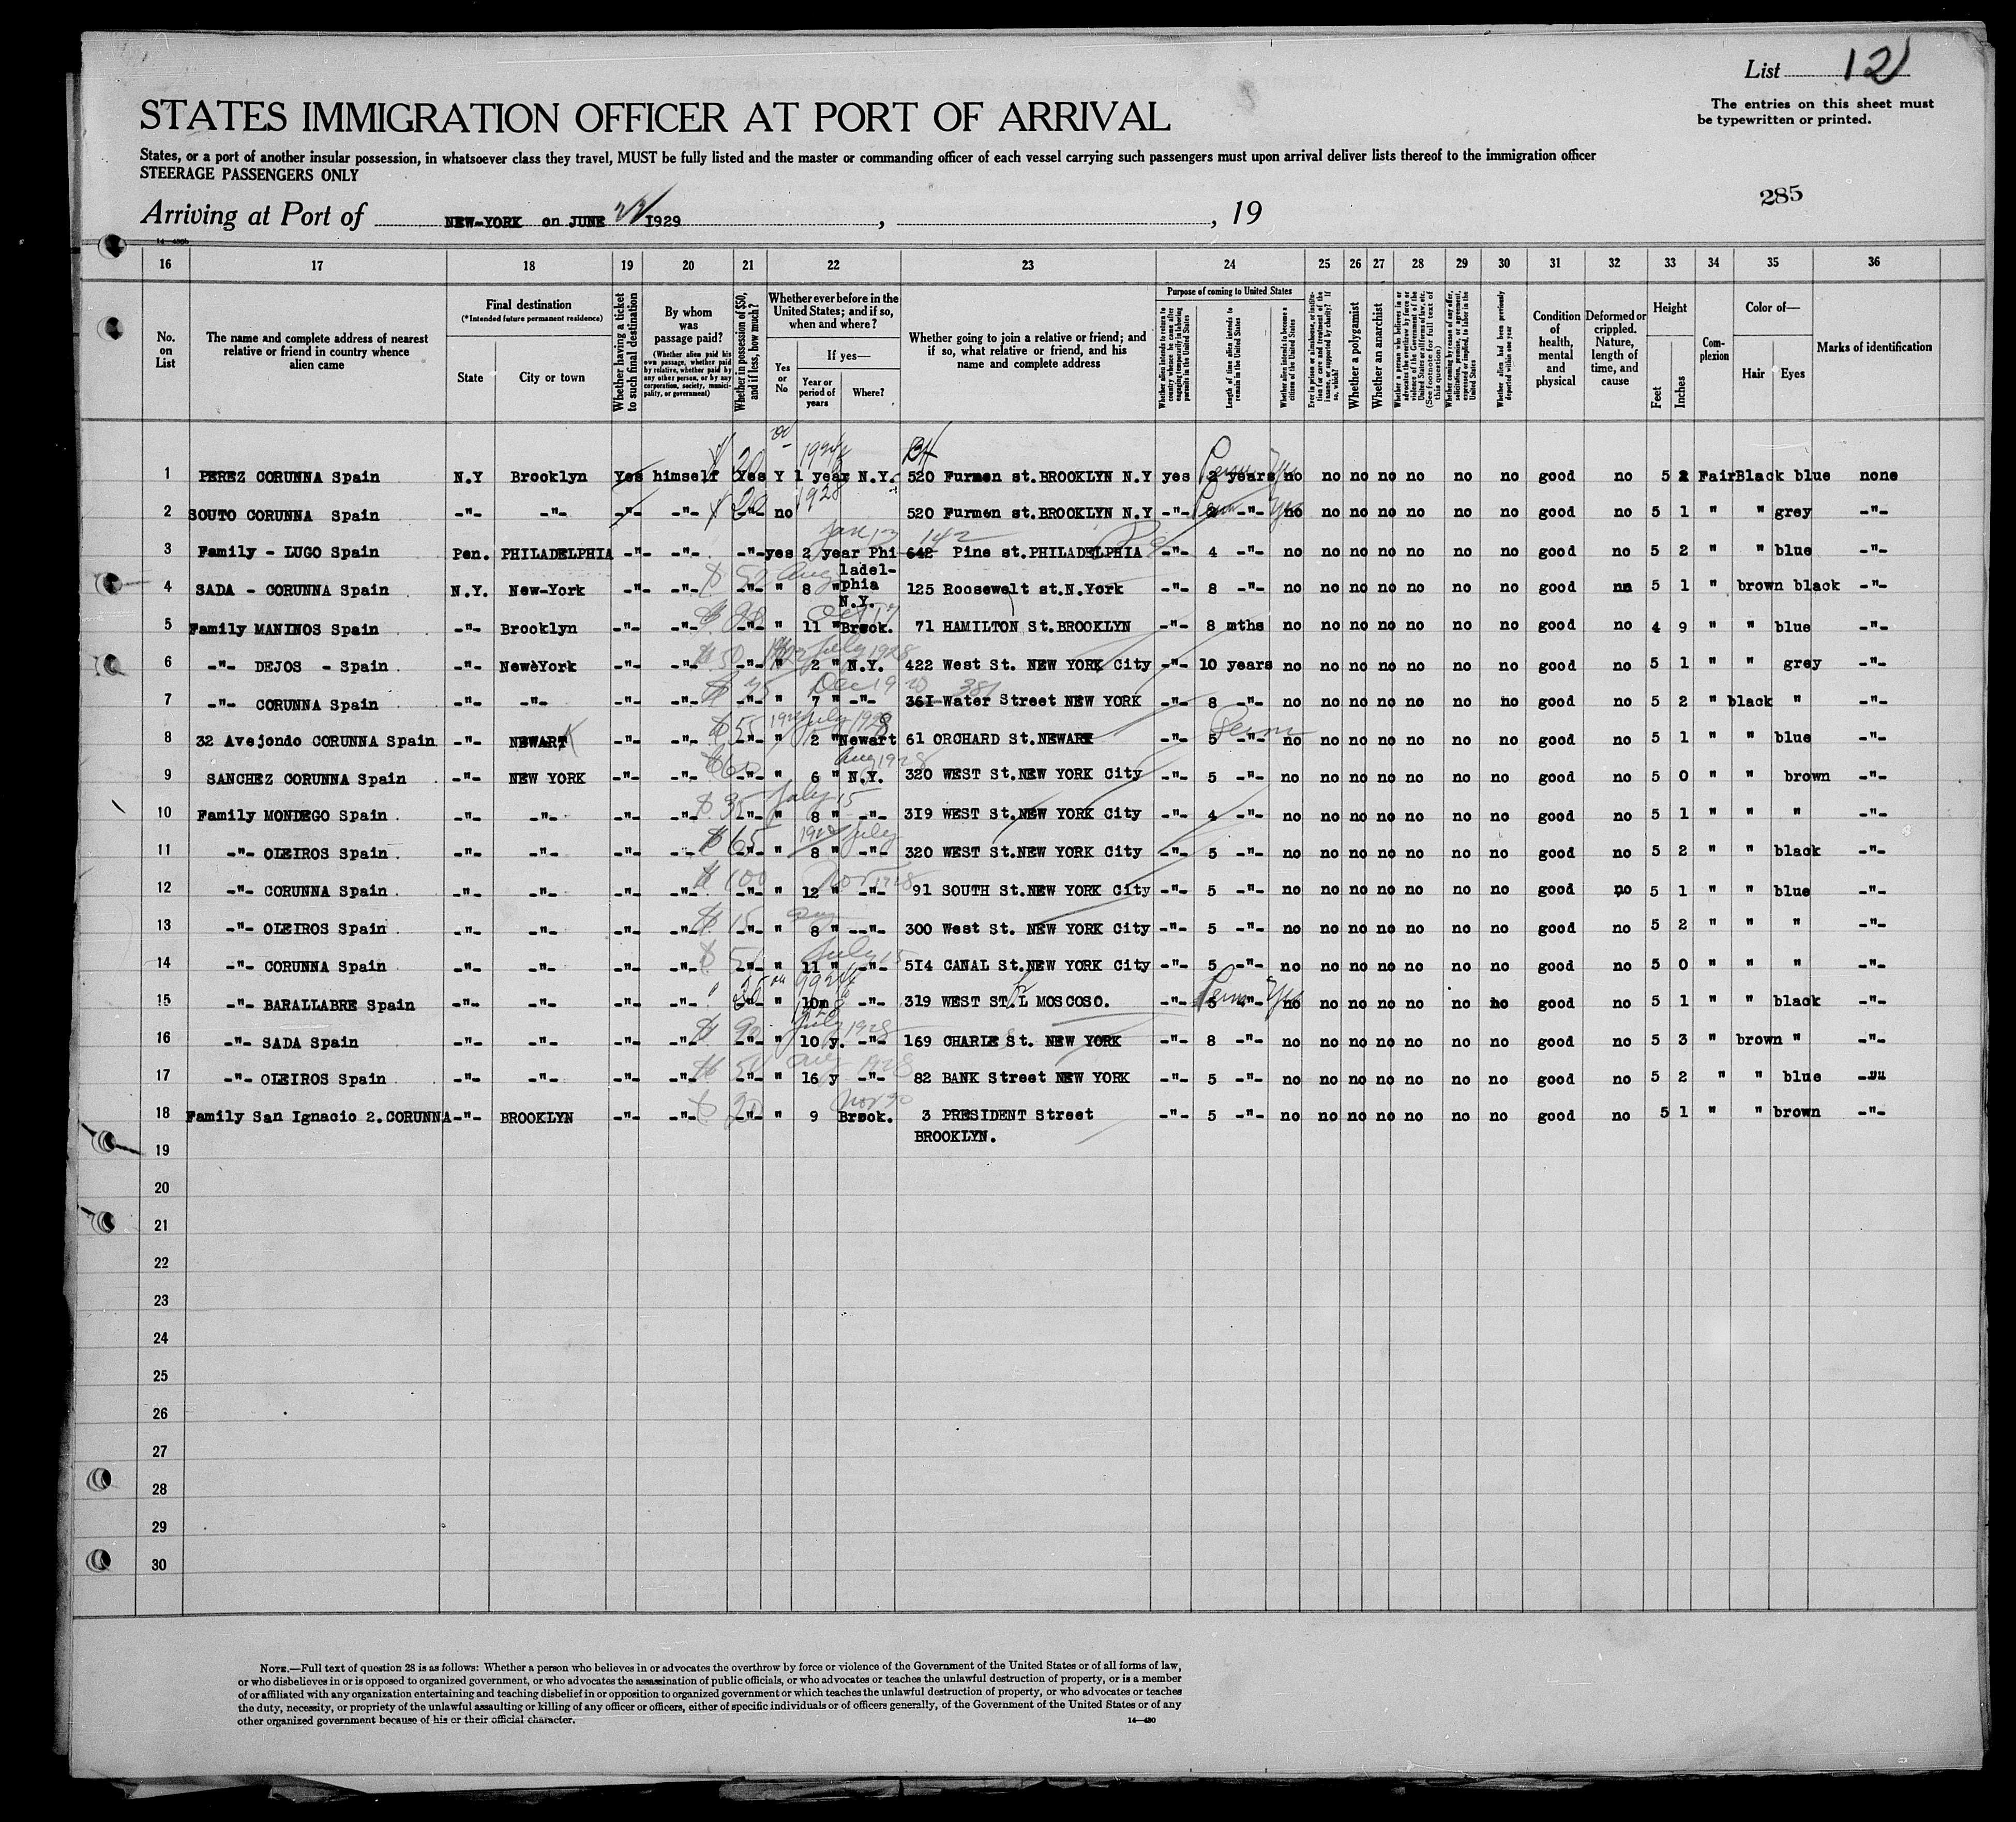 List 12
STATES IMMIGRATION OFFICER AT PORT OF ARRIVAL
The entries on this sheet must
be typewritten or printed.
States, or a port of another insular possession, in whatsoever class they travel, MUST be fully listed and the master or commanding officer of each vessel carrying such passengers must upon arrival deliver lists thereof to the immigration officer
STEERAGE PASSENGERS ONLY
285
Arriving at Port of NEW-YORK on JUNE 1929, , 19
16 17 18 19 20 21 22 23 24 25 26 27 28 29 30 31 32 33 34 35 36
No. on List
The name and complete address of nearest relative or friend in country whence alien came
Final destination
(*Intended future permanent residence)
State
City or town
Whether having a ticket to such final destination
By whom was passage paid?
(Whether alien paid his own passage, whether paid by relative, whether paid by any other person, or by any corporation, society, municipality, or government)
Whether in possession of $50, and if less, how much?
Whether ever before in the United States; and if so, when and where?
Yes or No
If yes—
Year or period of years
Where?
Whether going to join a relative or friend; and if so, what relative or friend, and his name and complete address
Purpose of coming to United States
Whether alien intends to return to country whence he came after engaging temporarily in laboring pursuits in the United States
Length of time alien intends to remain in the United States
Whether alien intends to become a citizen of the United States
Ever in prison or almshouse, or institution for care and treatment of the insane, or supported by charity? If so, which?
Whether a polygamist
Whether an anarchist
Whether a person who believes in or advocates the overthrow by force or violence of the Government of the United States or all forms of law, etc. (See footnote for full text of this question)
Whether coming by reason of any offer, solicitation, promise, or agreement, expressed or implied, to labor in the United States
Whether alien had been previously deported within one year
Condition of health, mental and physical
Deformed or crippled. Nature, length of time, and cause
Height
Feet
Inches
Complexion
Color of—
Hair
Eyes
Marks of identification
1 PEREZ CORUNNA Spain N.Y Brooklyn Yes himself Yes Y 1 year N.Y. 520 Furmen st.BROOKLYN N.Y yes 2 years no no no no no no no good no 5 2 Fair Black blue none
2 SOUTO CORUNNA Spain -"- -"- -"- -"- -"- no 1928 520 Furmen st.BROOKLYN N.Y -"- 2 -"- no no no no no no no good no 5 1 " " grey -"-
3 Family - LUGO Spain Pen. PHILADELPHIA -"- -"- -"- yes 2 year Philadelphia 642 142 Pine st.PHILADELPHIA -"- 4 -"- no no no no no no no good no 5 2 " " blue -"-
4 SADA - CORUNNA Spain N.Y. New-York -"- -"- -"- " 8 " N.Y. 125 Roosewelt st.N.York -"- 8 -"- no no no no no no no good no 5 1 " brown black -"-
5 Family MANINOS Spain -"- Brooklyn -"- -"- -"- " 11 " Brook. 71 HAMILTON St.BROOKLYN -"- 8 mths no no no no no no no good no 4 9 " " blue -"-
6 -"- DEJOS - Spain -"- New York -"- -"- $50 -"- " 2 " N.Y. July 1928 422 West St. NEW YORK City -"- 10 years no no no no no no no good no 5 1 " " grey -"-
7 -"- CORUNNA Spain -"- -"- -"- -"- -"- " 7 " -"- 361 381 Water Street NEW YORK -"- 8 -"- no no no no no no no good no 5 2 " black " -"-
8 32 Avejondo CORUNNA Spain -"- NEWART -"- -"- -"- " 2 " Newart 61 ORCHARD St.NEWARK -"- 5 -"- no no no no no no no good no 5 1 " " blue -"-
9 SANCHEZ CORUNNA Spain -"- NEW YORK -"- -"- $60 -"- " 6 " N.Y. Aug 1928 320 WEST St.NEW YORK City -"- 5 -"- no no no no no no no good no 5 0 " " brown -"-
10 Family MONDEGO Spain -"- -"- -"- -"- $35 -"- " 8 " -"- July 15 319 WEST St.NEW YORK City -"- 4 -"- no no no no no no no good no 5 1 " " " -"-
11 -"- OLEIROS Spain -"- -"- -"- -"- $65 -"- " 8 " -"- July 320 WEST St.NEW YORK City -"- 5 -"- no no no no no no no good no 5 2 " " black -"-
12 -"- CORUNNA Spain -"- -"- -"- -"- $100 -"- " 12 " -"- Nov 1928 91 SOUTH St.NEW YORK City -"- 5 -"- no no no no no no no good no 5 1 " " blue -"-
13 -"- OLEIROS Spain -"- -"- -"- -"- $15 -"- " 8 " -"- 300 West St. NEW YORK City -"- 5 -"- no no no no no no no good no 5 2 " " " -"-
14 -"- CORUNNA Spain -"- -"- -"- -"- -"- " 11 " -"- July 15 514 CANAL St.NEW YORK City -"- 5 -"- no no no no no no no good no 5 0 " " " -"-
15 -"- BARALLABRE Spain -"- -"- -"- -"- -"- " 10m -"- 319 WEST ST.L MOSCOSO. -"- 5 -"- no no no no no no no good no 5 1 " " black -"-
16 -"- SADA Spain -"- -"- -"- -"- $90 -"- " 10 y. -"- July 1928 169 CHARLE St. NEW YORK -"- 8 -"- no no no no no no no good no 5 3 " brown " -"-
17 -"- OLEIROS Spain -"- -"- -"- -"- -"- " 16 y -"- Aug 1928 82 BANK Street NEW YORK -"- 5 -"- no no no no no no no good no 5 2 " " blue -"-
18 Family San Ignacio 2.CORUNNA -"- BROOKLYN -"- -"- -"- " 9 Brook. 3 PRESIDENT Street -"- 5 -"- no no no no no no no good no 5 1 " " brown -"-
BROOKLYN.
19
20
21
22
23
24
25
26
27
28
29
30
NOTE.—Full text of question 28 is as follows: Whether a person who believes in or advocates the overthrow by force or violence of the Government of the United States or of all forms of law,
or who disbelieves in or is opposed to organized government, or who advocates the assassination of public officials, or who advocates or teaches the unlawful destruction of property, or is a member
of or affiliated with any organization entertaining and teaching disbelief in or opposition to organized government or which teaches the unlawful destruction of property, or who advocates or teaches
the duty, necessity, or propriety of the unlawful assaulting or killing of any officer or officers, either of specific individuals or of officers generally, of the Government of the United States or of any
other organized government because of his or their official character.
14—430